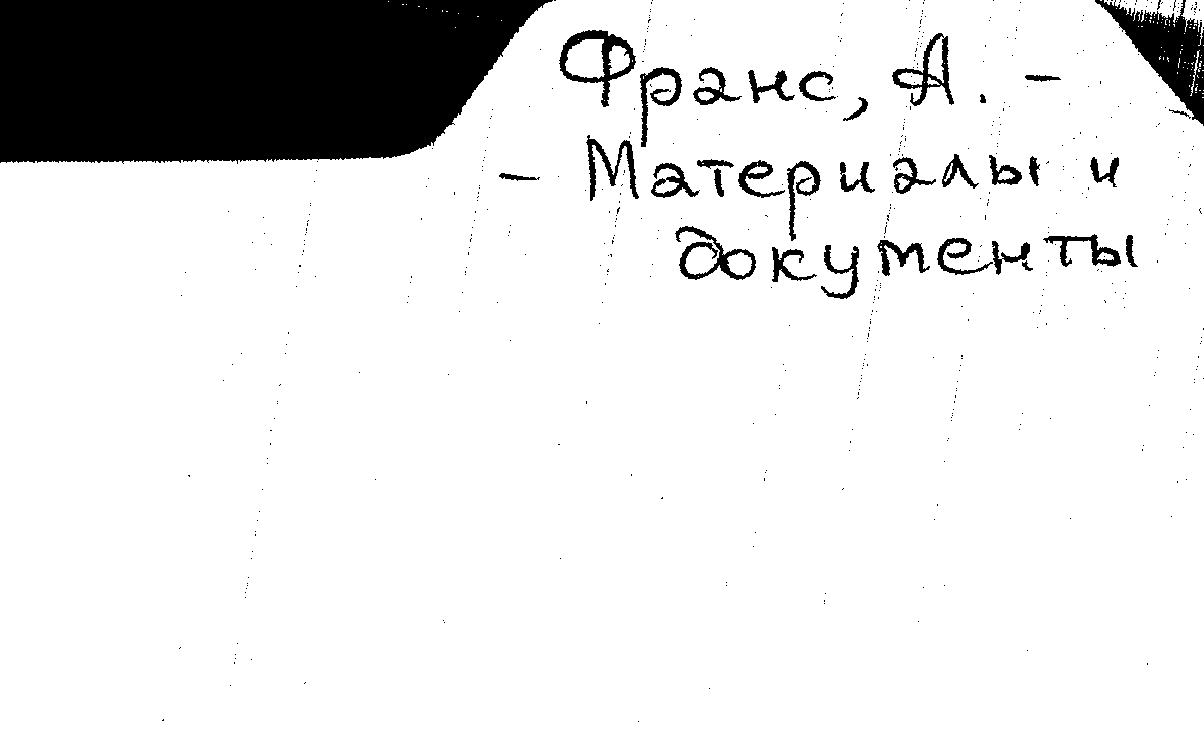 Франс, А. -
- Материалы и
документы